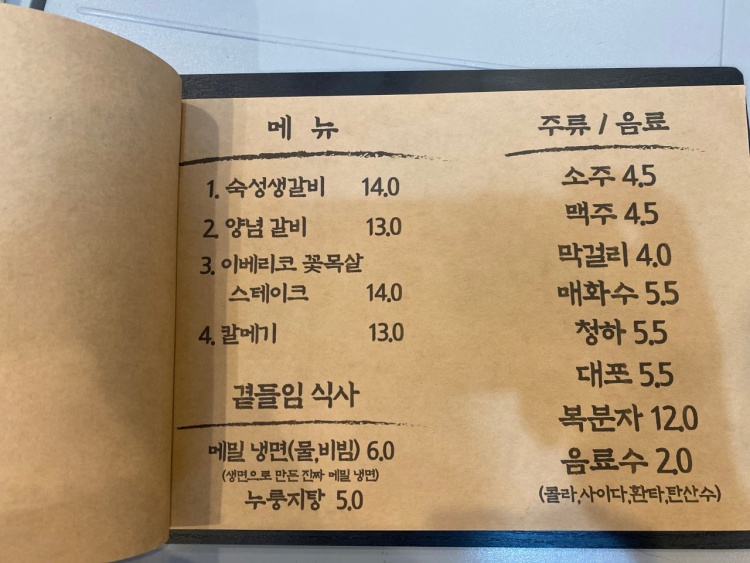 메 뉴
1. 숙성생갈비 14.0
2. 양념 갈비 13.0
3. 이베리코 꽃목살
스테이크 14.0
4. 칼메기 13.0
곁들임 식사
메밀 냉면(물,비빔) 6.0
(생면으로 만든 진짜 메밀 냉면)
누룽지탕 5.0
주류 / 음료
소주 4.5
맥주 4.5
막걸리 4.0
매화수 5.5
청하 5.5
대포 5.5
복분자 12.0
음료수 2.0
(콜라,사이다,환타,탄산수)